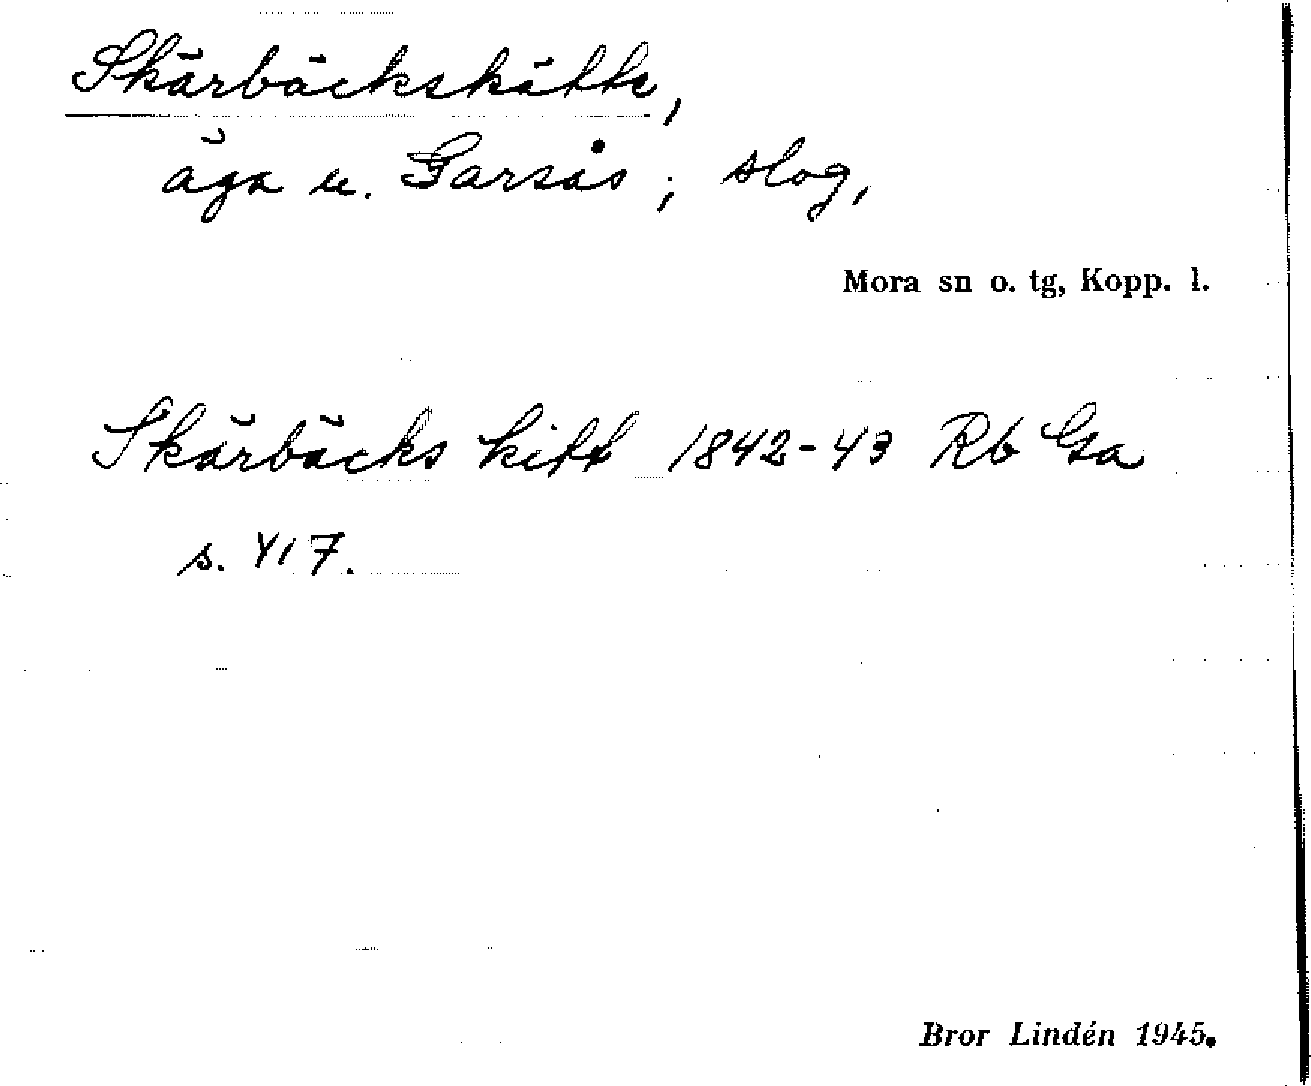 Skärbäckskätte,
äga u. Garsås; slog,
Mora sn o. tg, Kopp. l.
Skärbäcks kitt 1842-43 Rb Ga
s. 417.
Bror Lindén 1945.